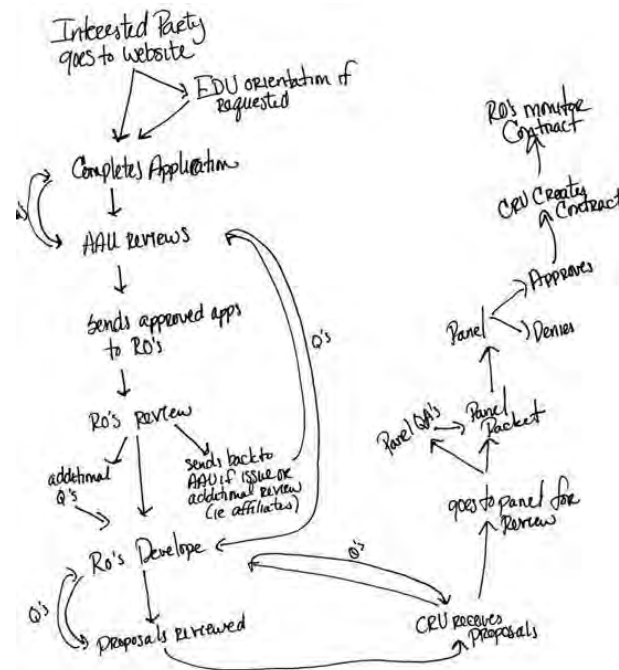 Interested Party
goes to website
EDU orientation if
requested
Completes Application
AAU reviews
Sends approved apps
to RO's
RO's Review
additional
Q's
sends back to
AAU if issue or
additional review
(ie affiliates)
Q's
RO's Develope
Q's
Proposals Reviewed
Q's
CRU receives
Proposals
goes to panel for
Review
Panel QA's
Panel
Packet
Panel
Approves
Denies
CRU Creates
Contract
RO's monitor
Contract